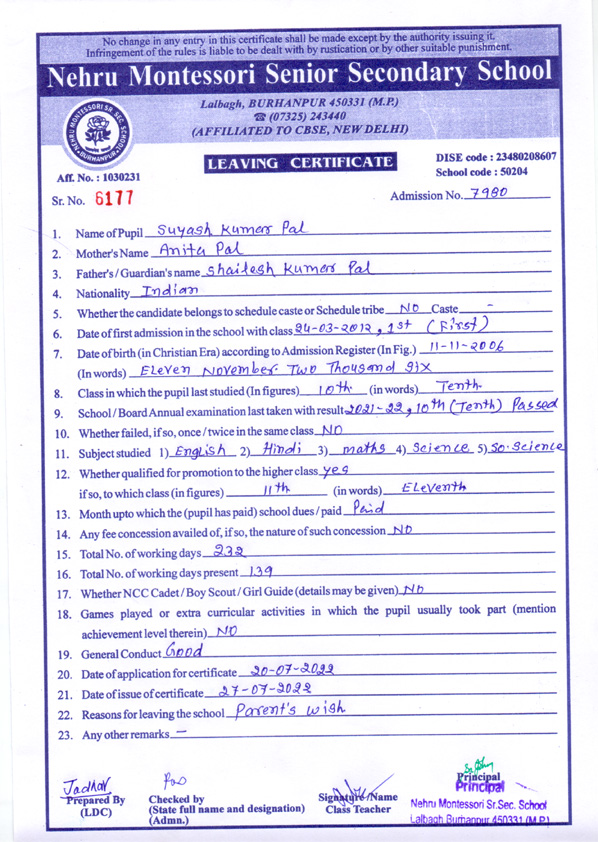 No change in any entry in this certificate shall be made except by the authority issuing it.
Infringement of the rules is liable to be dealt with by rustication or by other suitable punishment.
Nehru Montessori Senior Secondary School
Lalbagh, BURHANPUR 450331 (M.P.)
☎ (07325) 243440
(AFFILIATED TO CBSE, NEW DELHI)
NEHRU MONTESSORI SR. SEC. SCHOOL
BURHANPUR
LEAVING CERTIFICATE
DISE code : 23480208607
School code : 50204
Aff. No. : 1030231
Sr. No. 6177
Admission No. 7980
1. Name of Pupil Suyash Kumar Pal
2. Mother's Name Anita Pal
3. Father's / Guardian's name Shailesh Kumar Pal
4. Nationality Indian
5. Whether the candidate belongs to schedule caste or Schedule tribe NO Caste -
6. Date of first admission in the school with class 24-03-2012, 1st (First)
7. Date of birth (in Christian Era) according to Admission Register (In Fig.) 11-11-2006
(In words) Eleven November Two Thousand Six
8. Class in which the pupil last studied (In figures) 10th (in words) Tenth
9. School / Board Annual examination last taken with result 2021-22, 10th (Tenth) Passed
10. Whether failed, if so, once / twice in the same class NO
11. Subject studied 1) English 2) Hindi 3) maths 4) Science 5) So. Science
12. Whether qualified for promotion to the higher class yes
if so, to which class (in figures) 11th (in words) Eleventh
13. Month upto which the (pupil has paid) school dues / paid Paid
14. Any fee concession availed of, if so, the nature of such concession NO
15. Total No. of working days 232
16. Total No. of working days present 139
17. Whether NCC Cadet / Boy Scout / Girl Guide (details may be given) NO
18. Games played or extra curricular activities in which the pupil usually took part (mention
achievement level therein) NO
19. General Conduct Good
20. Date of application for certificate 20-07-2022
21. Date of issue of certificate 27-07-2022
22. Reasons for leaving the school Parent's wish
23. Any other remarks -
Jadhav
Prepared By
(LDC)
Checked by
(State full name and designation)
(Admn.)
Signature/Name
Class Teacher
Principal
Principal
Nehru Montessori Sr.Sec. School
Lalbagh Burhanpur 450331 (M.P.)